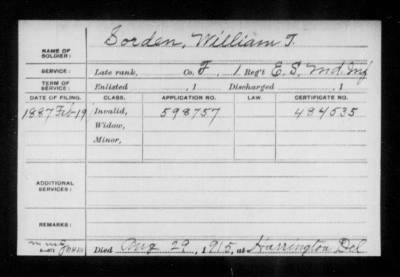 NAME OF SOLDIER: Sorden, William T.
SERVICE: Late rank, Co. F, 1 Reg't E. S. Md. Inf
TERM OF SERVICE: Enlisted , 1 Discharged , 1
DATE OF FILING. CLASS. APPLICATION NO. LAW. CERTIFICATE NO.
1887 Feb-19 Invalid, 598757 484535
Widow,
Minor,
ADDITIONAL SERVICES:
REMARKS:
Died Aug 29, 1915, at Harrington Del